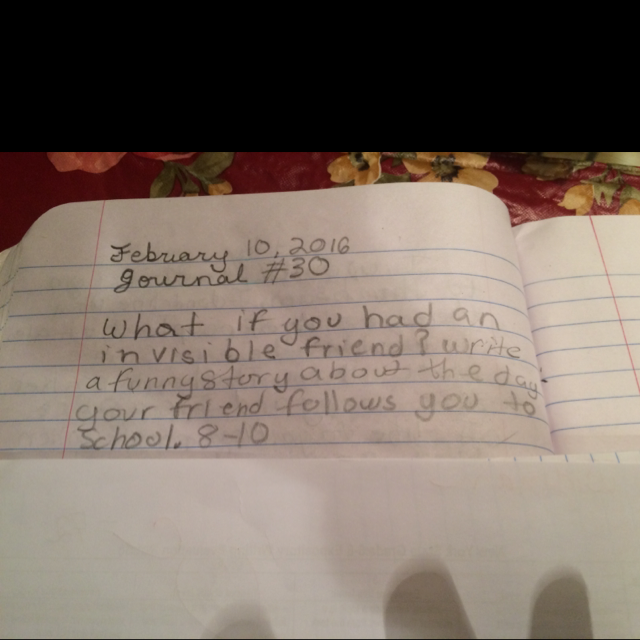 February 10, 2016
Journal #30
What if you had an
invisible friend? write
a funny story abow the day
your friend follows you to
School. 8-10